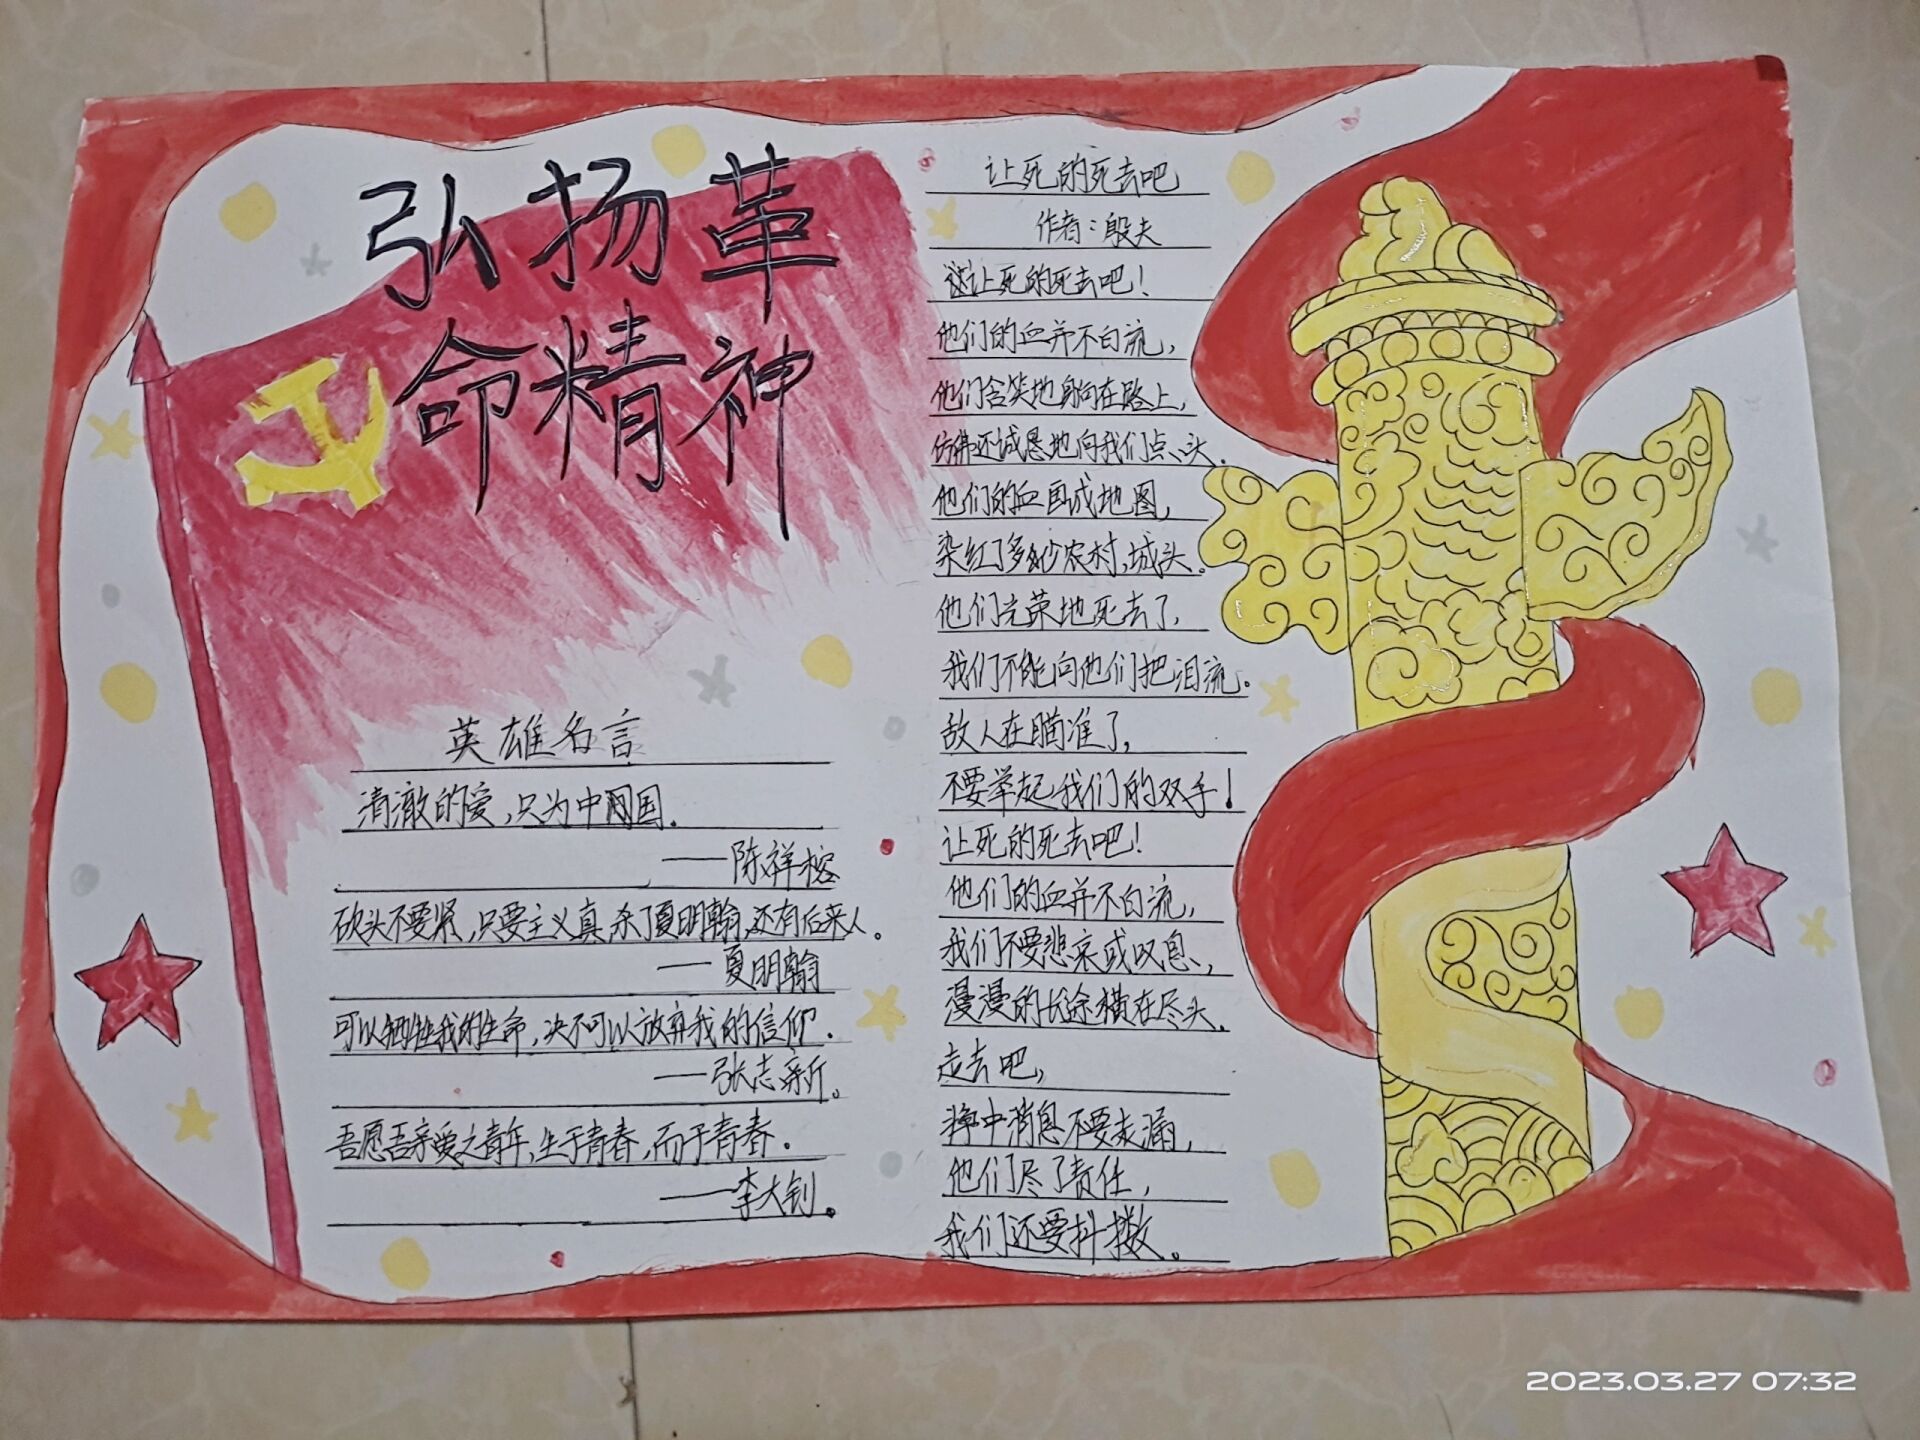 弘扬革
命精神
英雄名言
清澈的爱,只为中国.
——陈祥榕
砍头不要紧,只要主义真,杀了夏明翰,还有后来人。
——夏明翰
可以牺牲我的生命,决不可以放弃我的信仰.
——张志新。
吾愿吾亲爱之青年,生于青春,而于青春.
——李大钊。
让死的死去吧
作者:殷夫
让死的死去吧!
他们的血并不白流,
他们含笑地躺在路上,
仿佛还诚恳地向我们点头.
他们的血画成地图,
染红了多少农村,城头.
他们光荣地死去了,
我们不能向他们把泪流。
敌人在瞄准了,
不要举起我们的双手!
让死的死去吧!
他们的血并不白流,
我们不要悲哀或叹息,
漫漫的长途横在尽头.
走去吧,
中消息不要走漏,
他们尽了责任,
我们还要抖擞。
2023.03.27 07:32